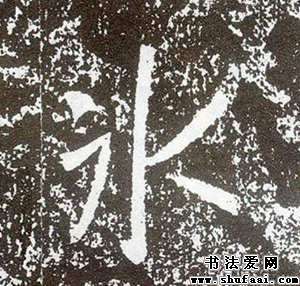 氷
书法爱网
www.shufaai.com